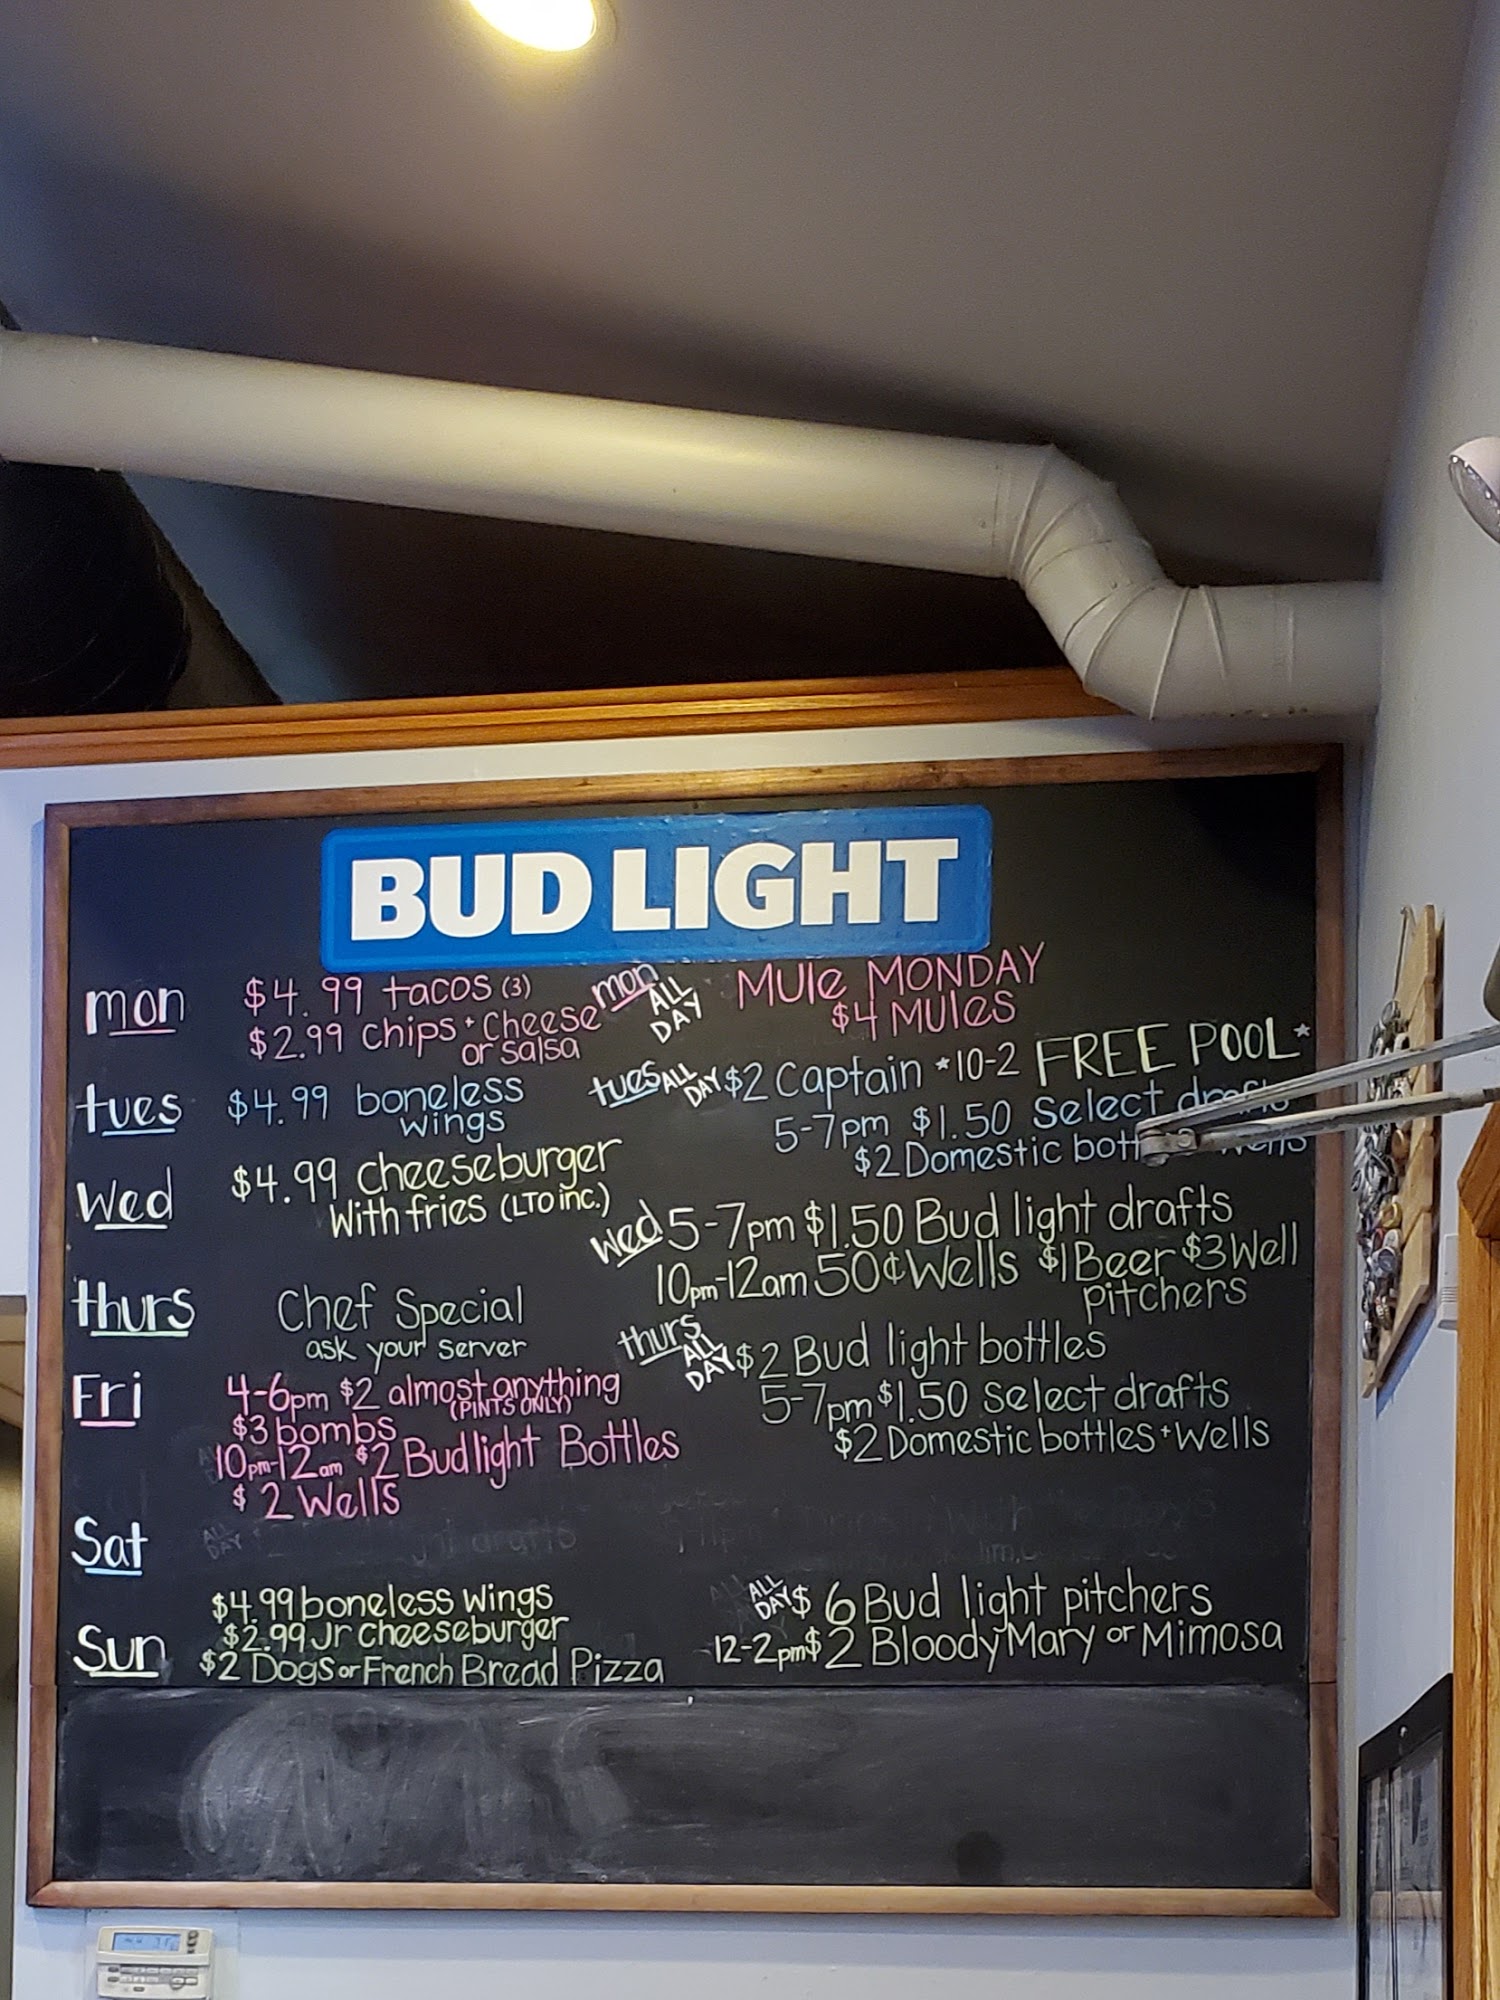 BUD LIGHT
mon $4.99 tacos (3)
$2.99 chips + cheese
or salsa
mon ALL DAY MULE MONDAY
$4 MULES
tues $4.99 boneless
wings
tues ALL DAY $2 Captain *10-2 FREE POOL*
5-7pm $1.50 Select drafts
$2 Domestic Wells
Wed $4.99 cheeseburger
With fries (LTO inc.)
Wed 5-7pm $1.50 Bud light drafts
10pm-12am 50¢ Wells $1 Beer $3 Well
pitchers
thurs Chef Special
ask your server
thurs ALL DAY $2 Bud light bottles
5-7pm $1.50 Select drafts
$2 Domestic bottles + Wells
Fri 4-6pm $2 almost anything
(PINTS ONLY)
$3 bombs
10pm-12am $2 Bud light Bottles
$2 Wells
Sat
ALL DAY drafts
Sun $4.99 boneless wings
$2.99 Jr cheeseburger
$2 Dogs or French Bread Pizza
ALL DAY $6 Bud light pitchers
12-2pm $2 Bloody Mary or Mimosa